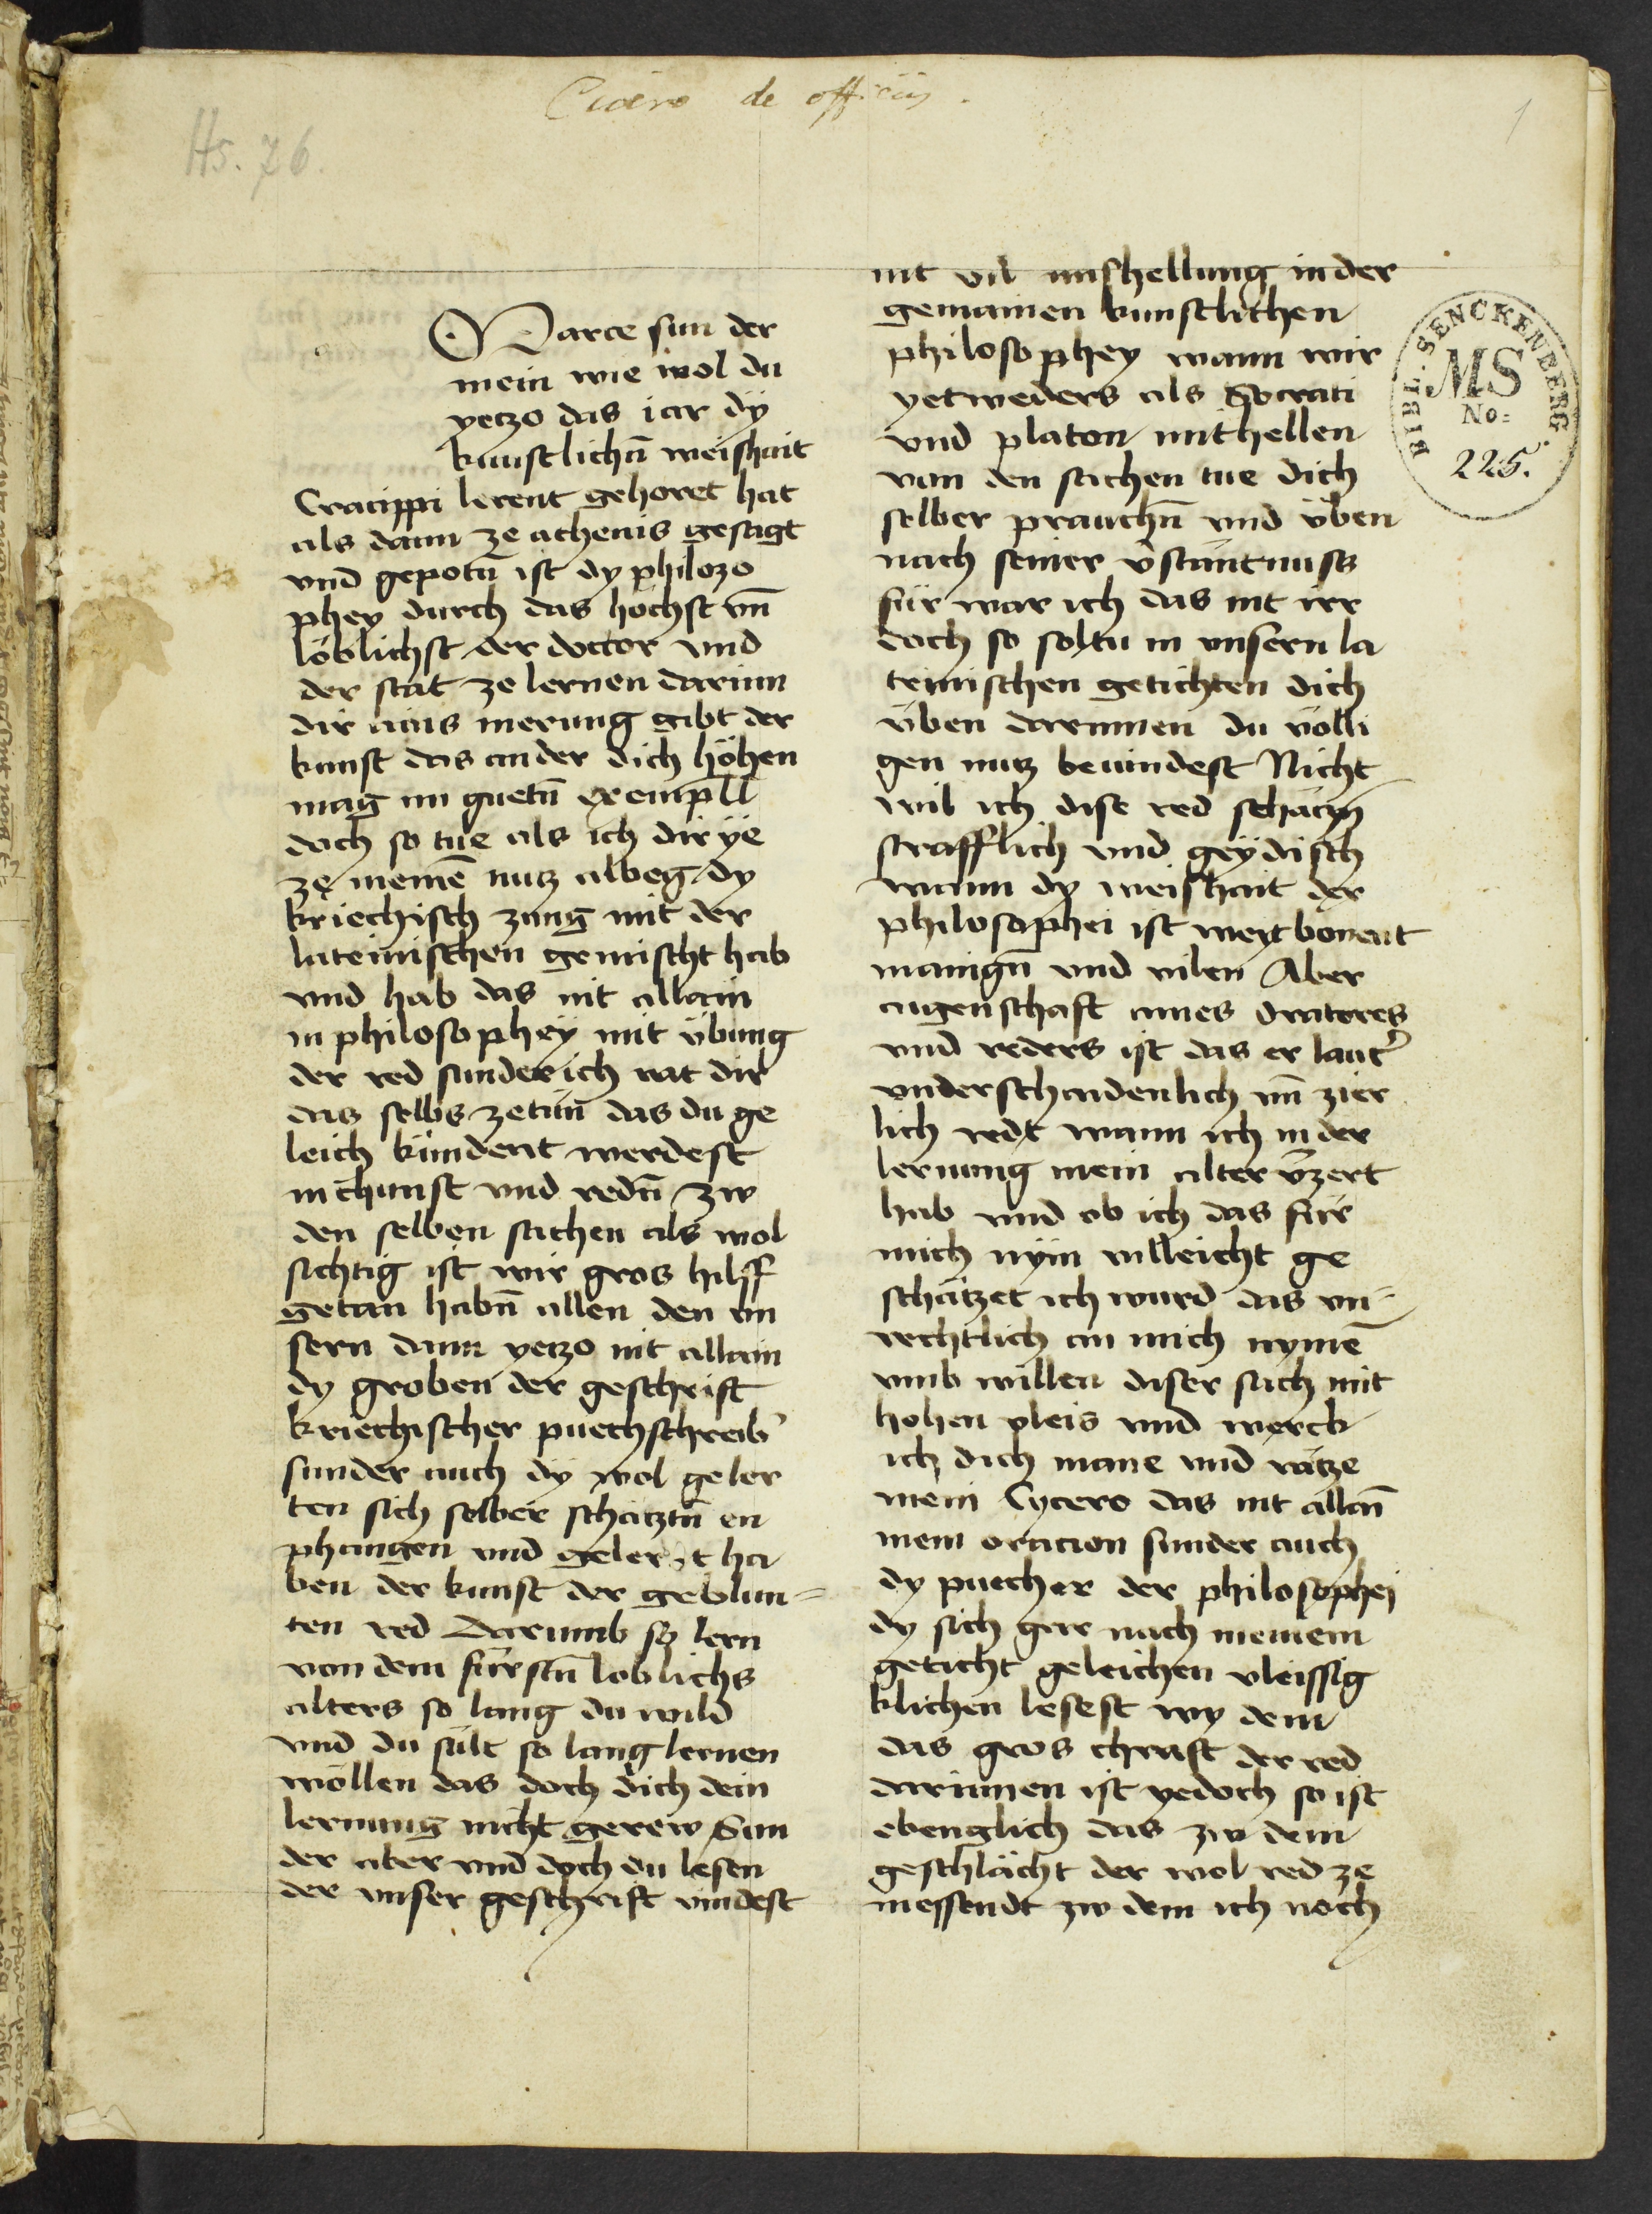 Cicero de officiis.
Hs. 76.
1
Marce sun der
mein wie wol du
yetzo das iar dÿ
kunstlichñ weishait
Cratippi lerent gehoret hat
als dann ze athenis gesagt
vnd gepotñ ist dy philozo
phey durch das höchst vñ
löblichst der doctor vnd
der stat ze lernen darinn
dir ains merung gibt der
kunst das ander dich höhen
mag mi guetñ exempll
doch so tue als ich dir ÿe
ze meinē nutz albeg dy
kriechisch zung mit der
lateinischen gemischt hab
vnd hab das nit allain
in philosophey mit übung
der red sunder ich rat dir
das selbs zetün das du ge
leich kündent werdest
in chunst vnd redñ zw
den selben sachen als wol
sichtig ist wir gros hilff
getan habñ allen den vn
sern dann yetzo nit allain
dy groben der geschrift
kriechischer puechschreib'
sunder auch dÿ wol geler
ten sich selber schätztñ en
phangen vnd gelert ha
ben der kunst der geblum=
ten red Darumb so lern
von dem fürstñ loblichs
alters so lang du wild
vnd du sült so lang lernen
wöllen das doch dich dein
lernung nicht gerew Sun
der aber vnd doch du lesen
der vnser geschrift vindest
nit vil mishellung in der
gemainen kunstlichen
philosophey wann wir
yetweders als Socrati
vnd platon mithellen
von den sachen tue dich
selber prauchñ vnd üben
nach seiner v̄stäntnuss
für war ich das nit irr
doch so soltu in vnsern la
teinischen getichten dich
üben darinnen du völli
gen nutz bevindest Nicht
wil ich dise red schäczñ
strafflich vnd geÿdisch
wann dy weishait der
philosophei ist weyt bonent
manigñ vnd vilen Aber
aigenschaft aines Orateres
vnd reders ist das er laut'
vnderschaidenlich vñ zier
lich redt wann ich in der
lernung mein alter v̄zert
hab vnd ob ich das für
mich nÿm villeicht ge
schätzet ich wurd das vn=
rechtlich an mich nymē
vmb willen diser sach mit
hohen vleis vnd werck
ich dich mane vnd rätze
mein Cycero das nit allaī
mein oracion sunder auch
dy puecher der philosophei
dy sich gar nach meinem
geticht geleichen vleissig
klichen lesest wy dem
das gros chraft der red
darinnen ist yedoch so ist
ebenglich das zw dem
geschlächt der wol red ze
messendt zw dem ich noch
BIBL. SENCKENBERG.
MS
No:
225.